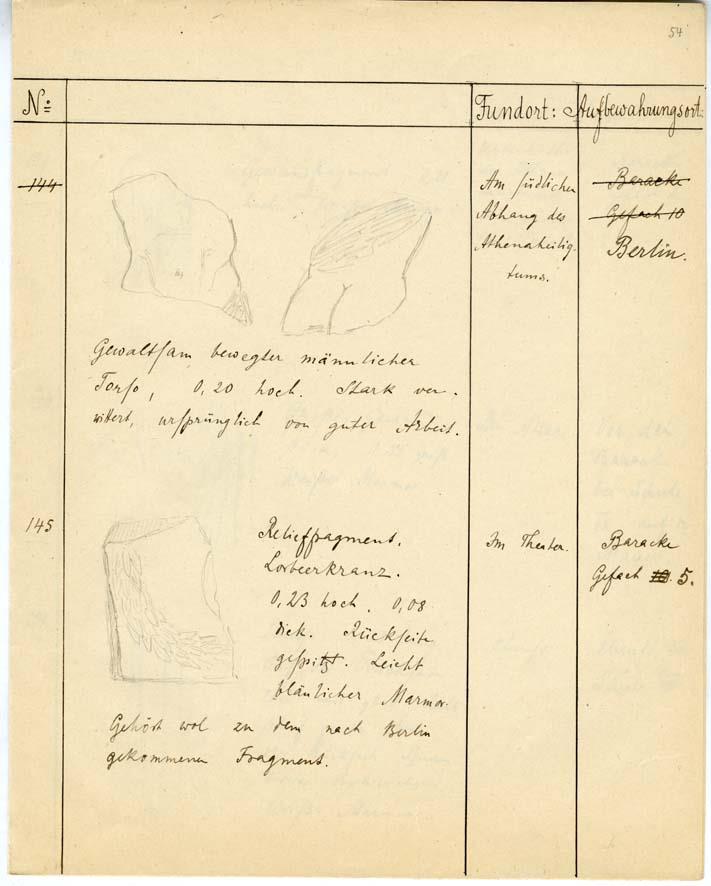 54
No: Fundort: Aufbewahrungsort:
144
Am südlichen
Abhang des
Athenaheilig-
tums.
Baracke
Gefach 10
Berlin.
Gewaltsam bewegter männlicher
Torso, 0,20 hoch. Stark ver-
wittert, ursprünglich von guter Arbeit.
145
Relieffragment.
Lorbeerkranz.
0,23 hoch, 0,08
dick. Rückseite
gespitzt. Leicht
bläulicher Marmor.
Gehört wol zu dem nach Berlin
gekommenen Fragment.
Im Theater.
Baracke
Gefach 10. 5.